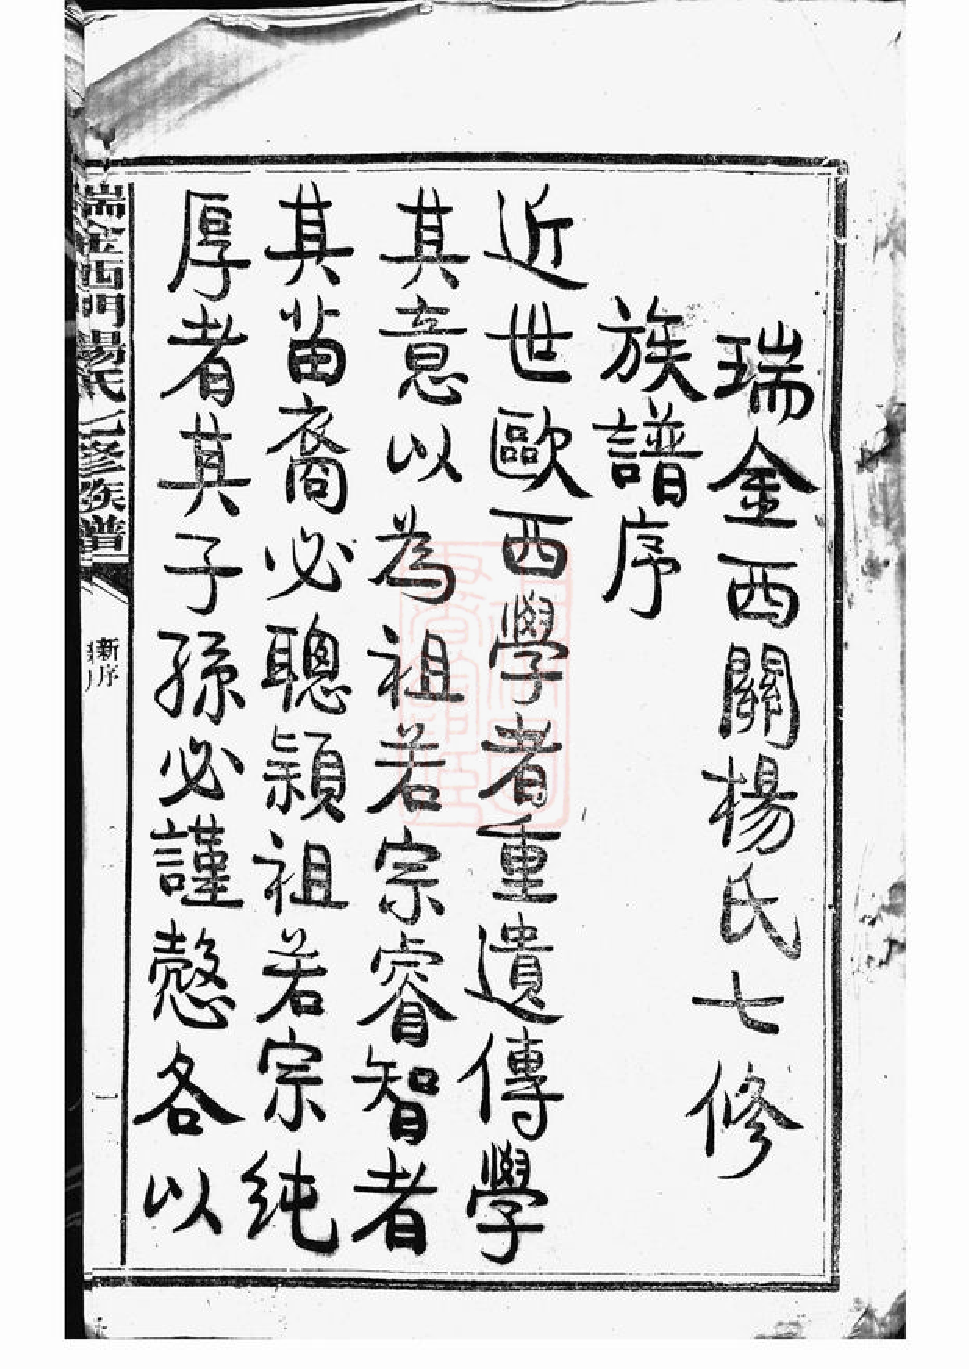 瑞金西關楊氏七修
族譜序
近世歐西學者重遺傳學
其意以為祖若宗睿智者
其苗裔必聰穎祖若宗純
厚者其子孫必謹慤各以
瑞金西門楊氏七修族譜
新序
一